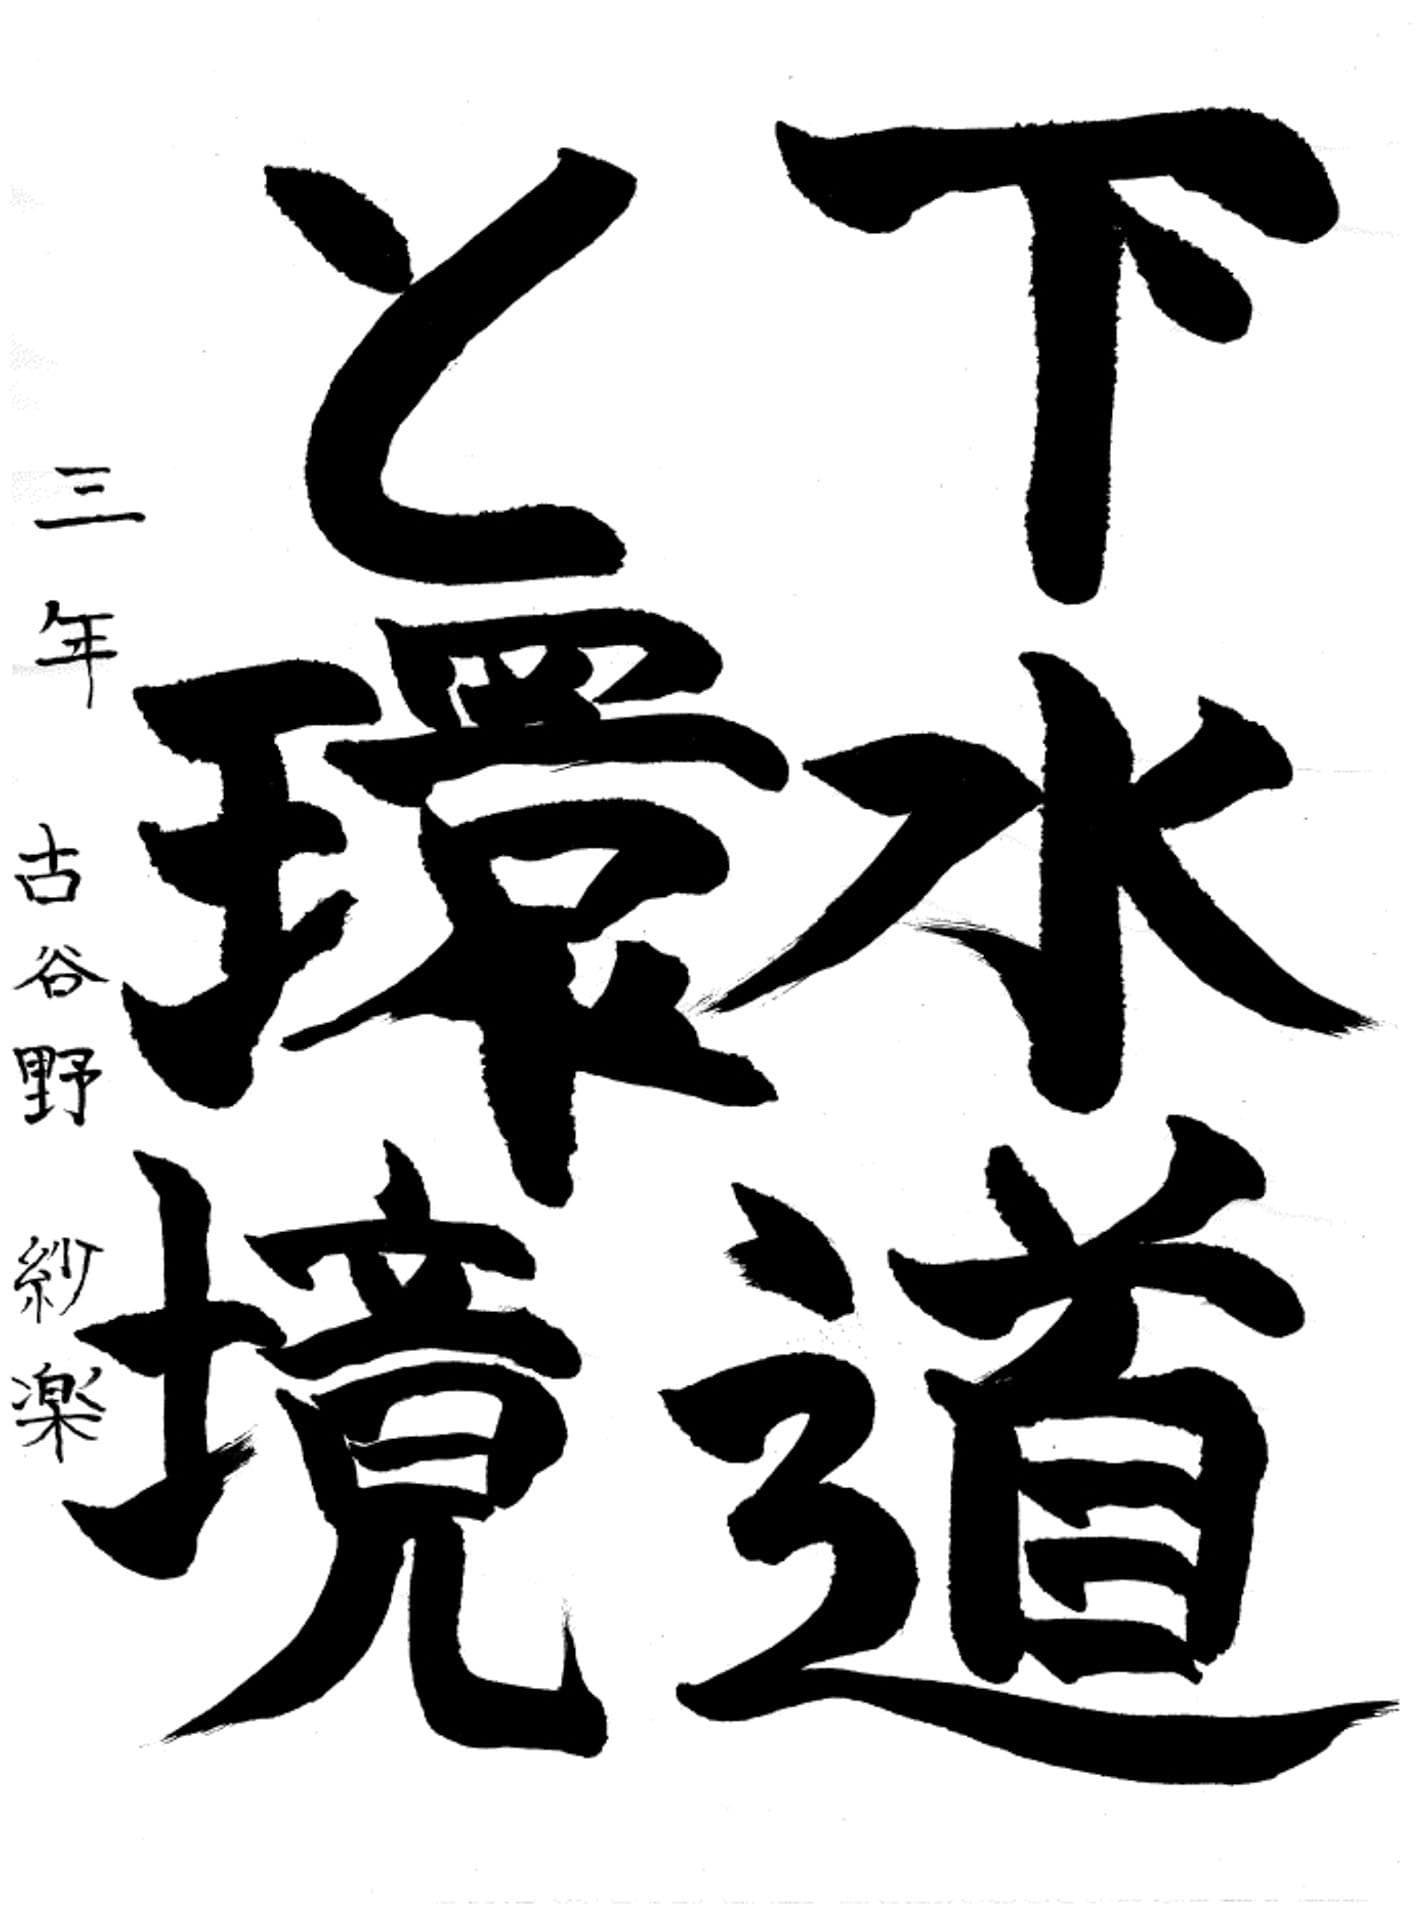 下水道
と環境
三年 古谷野 紗楽